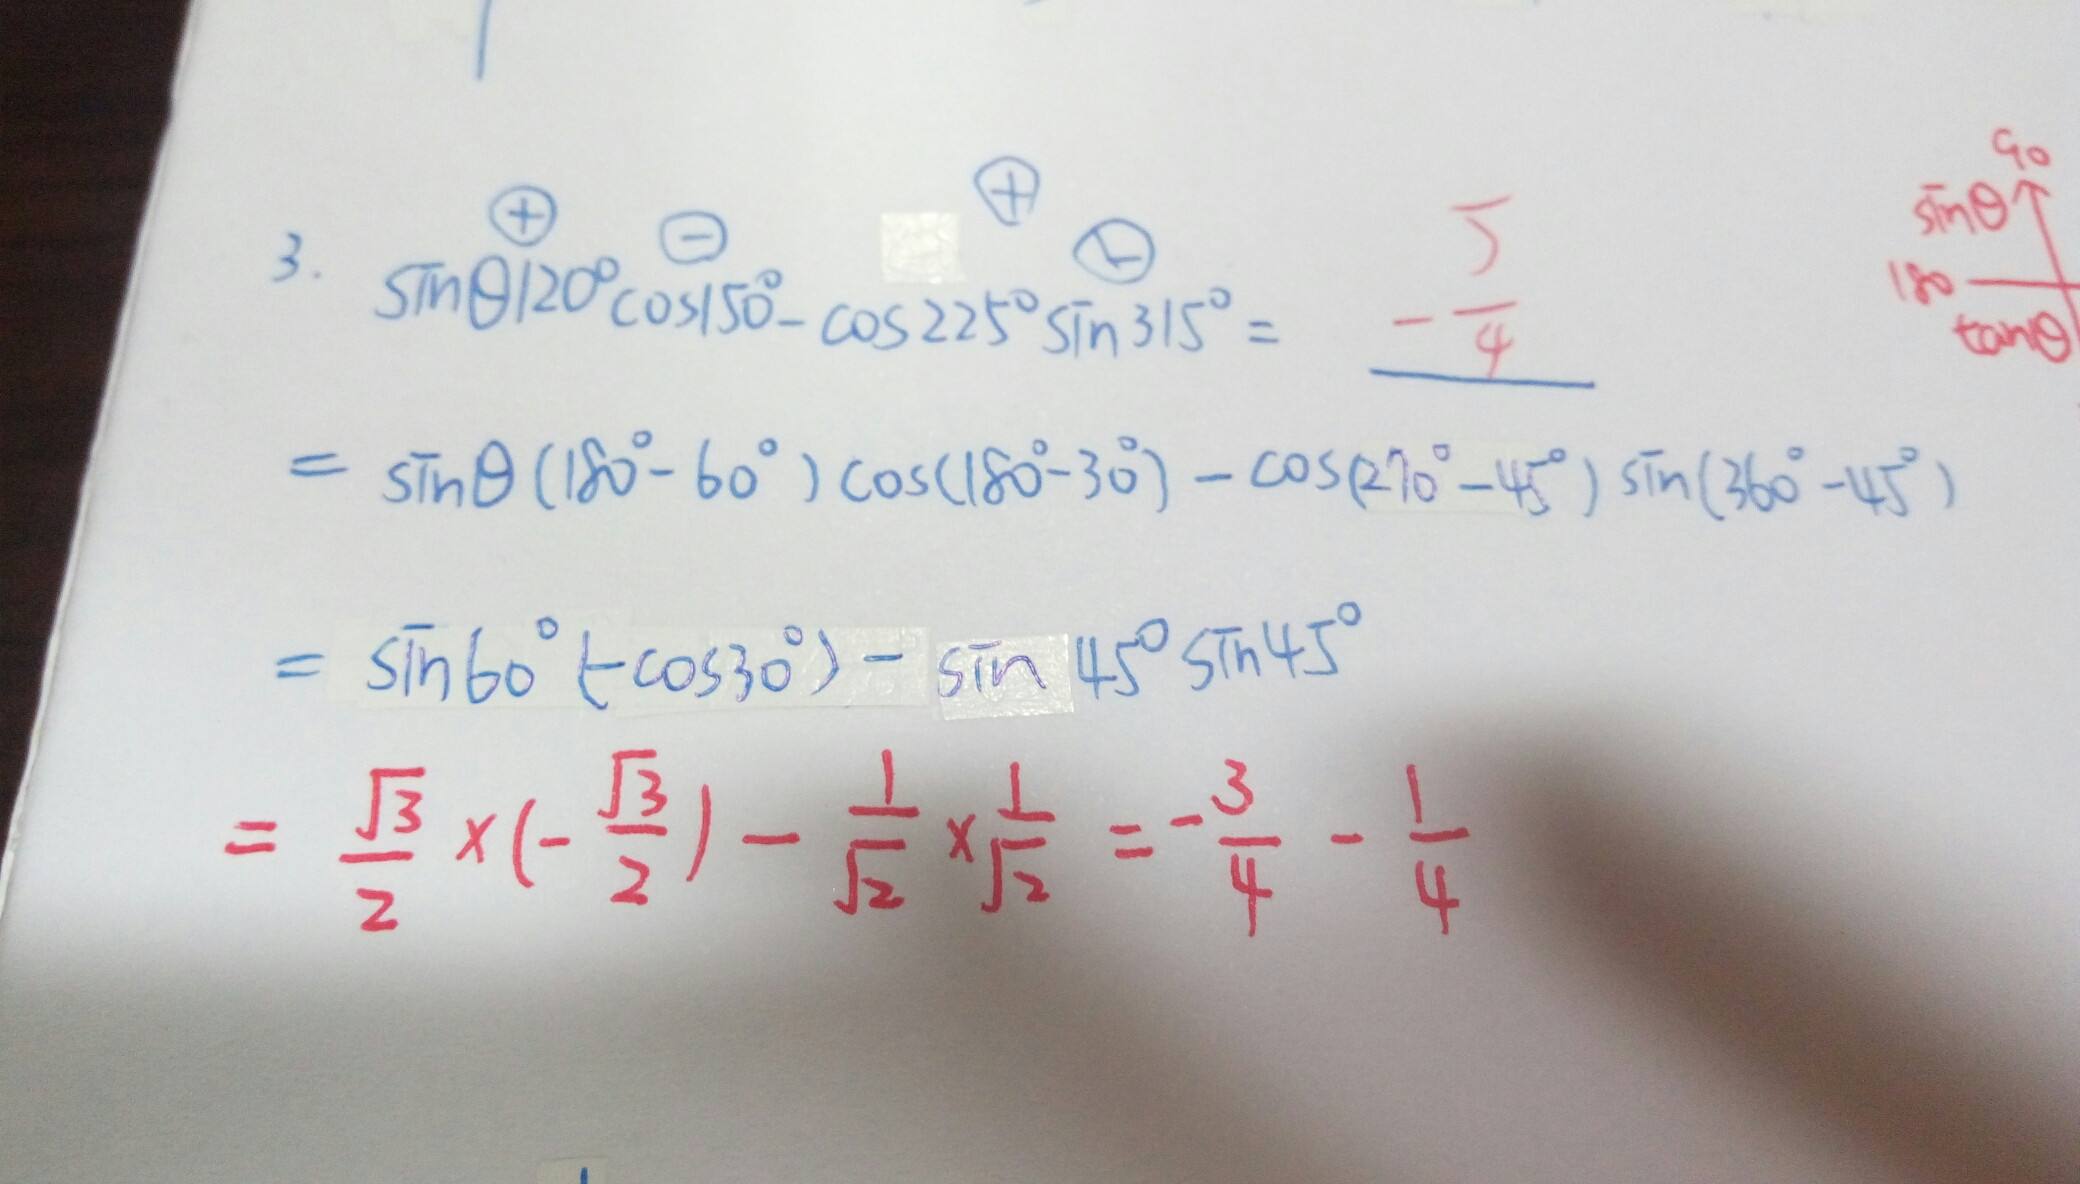 ⊕ ⊖ ⊕ ⊖
3. sinθ120°cos150°-cos225°sin315°= -5/4
=sinθ(180°-60°)cos(180°-30°)-cos(270°-45°)sin(360°-45°)
=sin60°(-cos30°)-sin45°sin45°
=√3/2×(-√3/2)-1/√2×1/√2=-3/4-1/4
90
sinθ
180
tanθ